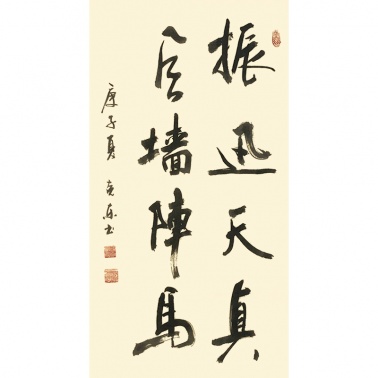 振迅天真
风墙陣馬
庚子夏